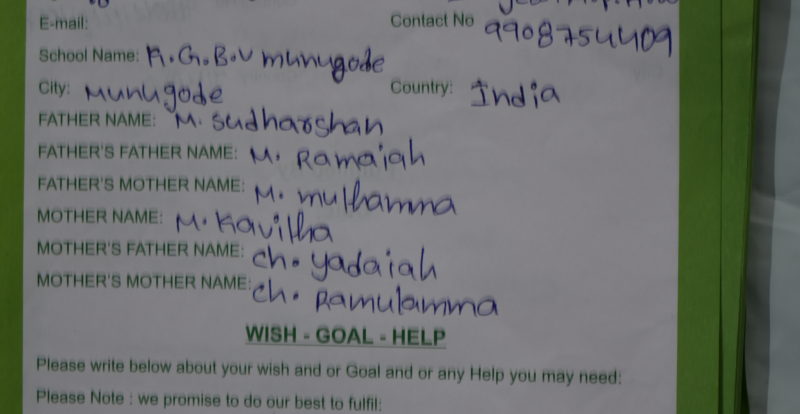 E-mail:
Contact No 9908754409
School Name: K.G.B.V munugode
City: Munugode Country: India
FATHER NAME: M. Sudharshan
FATHER'S FATHER NAME: M. Ramaiah
FATHER'S MOTHER NAME: M. muthamma
MOTHER NAME: M. Kavitha
MOTHER'S FATHER NAME: Ch. Yadaiah
MOTHER'S MOTHER NAME: Ch. Ramulamma
WISH - GOAL - HELP
Please write below about your wish and or Goal and or any Help you may need:
Please Note : we promise to do our best to fulfil: